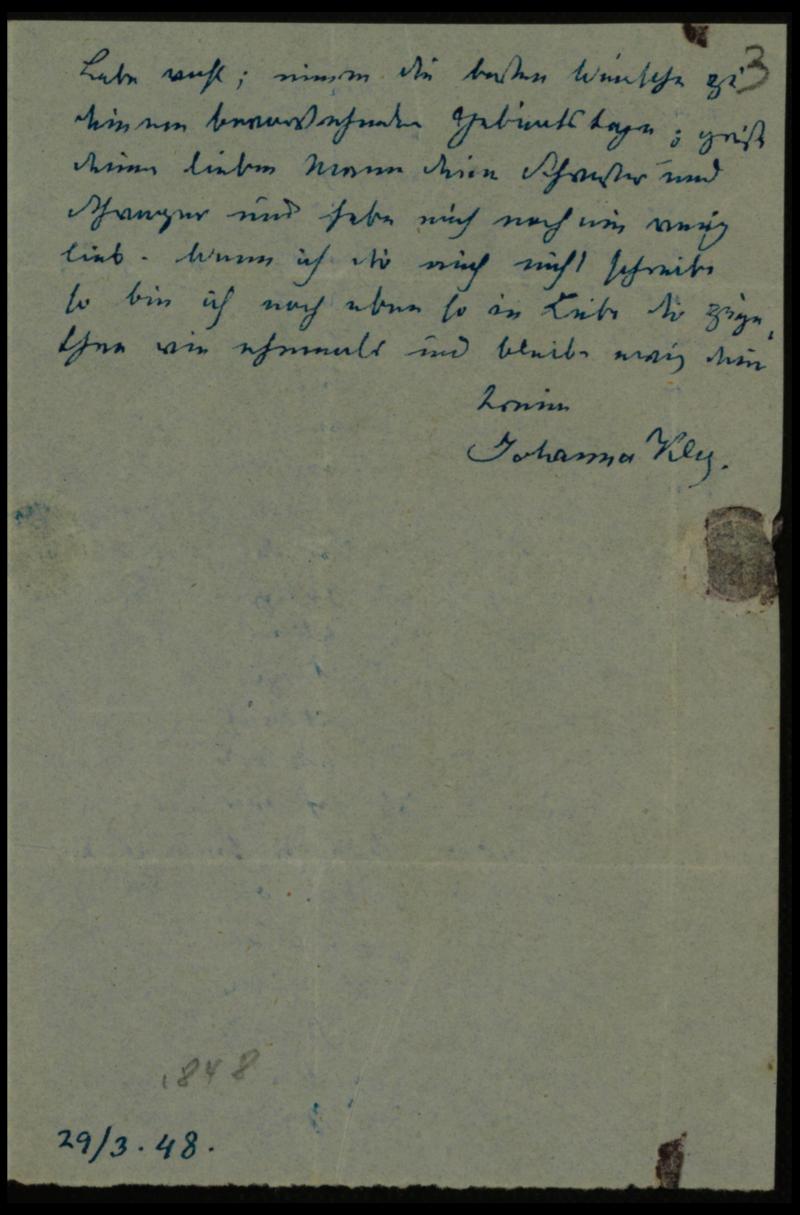 3
Lebe wohl; nimm die besten Wünsche zu
deinem bevorstehenden Geburtstage; grüß
deinen lieben Mann deine Schwester und
Schwager und habe mich noch ein wenig
lieb. Wenn ich dir auch nicht schreibe
so bin ich noch eben so in Liebe dir zuge,
than wie ehemals und bleibe ewig deine
treue
Johanna
1848
29/3.48.